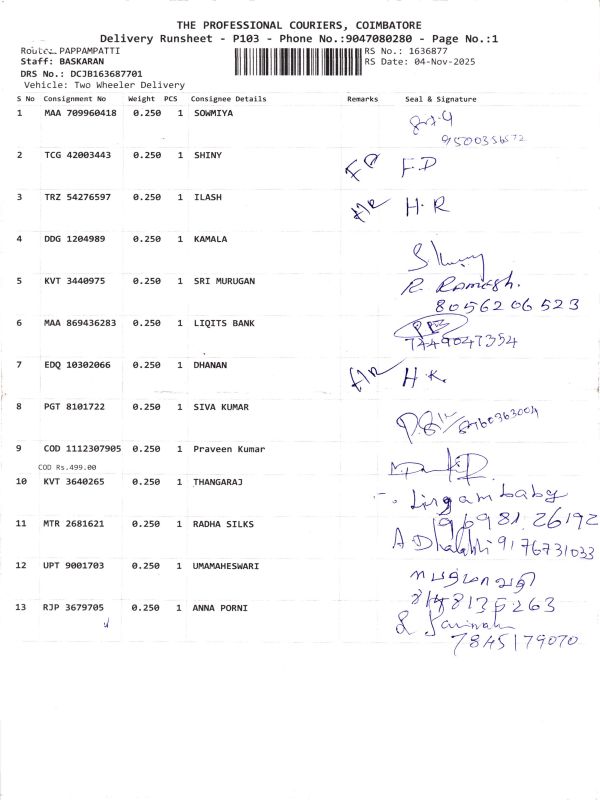 THE PROFESSIONAL COURIERS, COIMBATORE
Delivery Runsheet - P103 - Phone No.:9047080280 - Page No.:1
Route: PAPPAMPATTI RS No.: 1636877
Staff: BASKARAN RS Date: 04-Nov-2025
DRS No.: DCJB163687701
Vehicle: Two Wheeler Delivery
S No Consignment No Weight PCS Consignee Details Remarks Seal & Signature
1 MAA 709960418 0.250 1 SOWMIYA
2 TCG 42003443 0.250 1 SHINY F.D
3 TRZ 54276597 0.250 1 ILASH H.R
4 DDG 1204989 0.250 1 KAMALA
5 KVT 3440975 0.250 1 SRI MURUGAN R. Ramesh.
8056206523
6 MAA 869436283 0.250 1 LIQITS BANK
7449047354
7 EDQ 10302066 0.250 1 DHANAN H.K.
8 PGT 8101722 0.250 1 SIVA KUMAR
9 COD 1112307905 0.250 1 Praveen Kumar
COD Rs.499.00
10 KVT 3640265 0.250 1 THANGARAJ Lingambaby
96981 26192
11 MTR 2681621 0.250 1 RADHA SILKS A 9176731033
12 UPT 9001703 0.250 1 UMAMAHESWARI
13 RJP 3679705 0.250 1 ANNA PORNI
7845179070